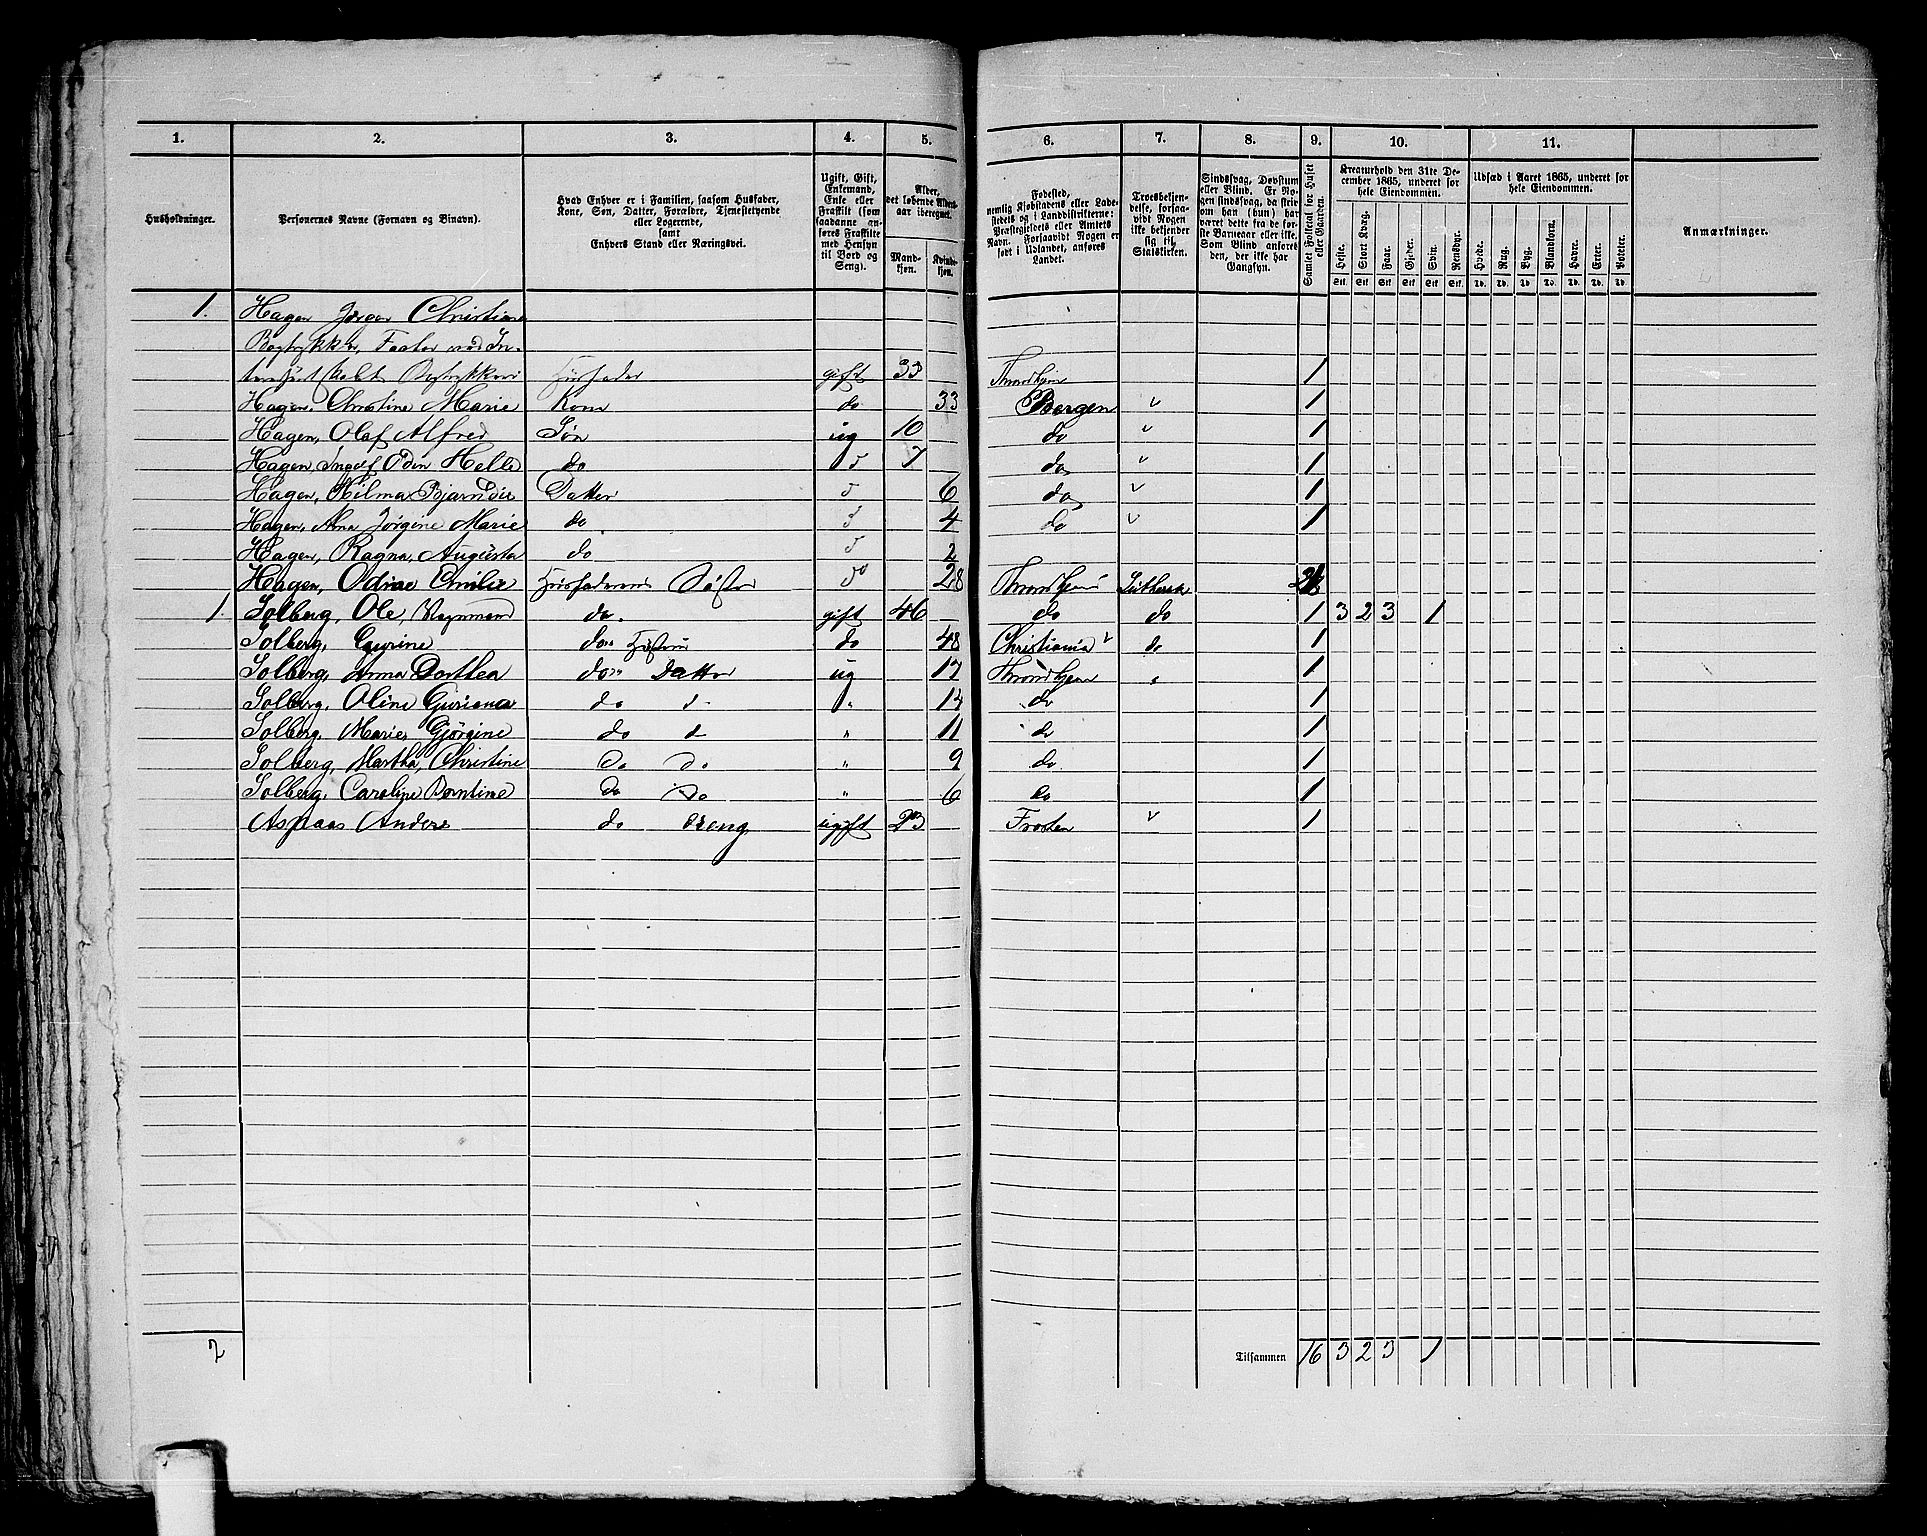 1. 2. 3. 4. 5. 6. 7. 8. 9. 10. 11.
Husholdninger.
Personernes Navne (Fornavn og Binavn).
Hvad Enhver er i Familien, saasom Husfader,
Kone, Søn, Datter, Forældre, Tjenestetyende
eller Logerende,
samt
Enhvers Stand eller Næringsvei.
Ugift, Gift,
Enkemand,
Enke eller
Fraskilt (som
saadanne an-
føres Fraskilte
med Hensyn
til Bord og
Seng).
Alder,
det løbende Alders-
aar iberegnet.
Mand-
kjøn.
Kvinde-
kjøn.
Fødested,
nemlig Kjøbstadens eller Lade-
stedets og i Landdistrikterne:
Præstegjeldets eller Amtets
Navn. Forsaavidt Nogen er
født i Udlandet, anføres
Landet.
Troesbekjen-
delse, forsaa-
vidt Nogen
ikke bekjender
sig til
Statskirken.
Sindssvag, Døvstum
eller Blind. Er No-
gen sindssvag, da skri-
ves om han (hun) har
været dette fra de før-
ste Barneaar eller ikke.
Som Blind anføres
den, der ikke har
Gangsyn.
Samlet Folketal for Huset
eller Gaarden.
Kreaturhold den 31te De-
cember 1865, underet for
hele Eiendommen.
Heste. Stort Kvæg. Faar. Gjeder. Svin. Rensdyr.
Stk. Stk. Stk. Stk. Stk. Stk.
Udsæd i Aaret 1865, underet for
hele Eiendommen.
Hvede. Rug. Byg. Blandkorn. Havre. Erter. Poteter.
Td. Td. Td. Td. Td. Td. Td.
Anmærkninger.
1. Hagen Jørgen Christian
Bogtrykker, Factor ved
Bogtrykkeri Husfader gift 33 Throndhjem 1
Hagen, Christine Marie Kone do 33 Bergen " 1
Hagen, Olaf Alfred Søn ug 10 do " 1
Hagen, Ingolf Odin Helle do 7 do " 1
Hagen, Hilma Datter 6 do " 1
Hagen, Anna Jørgine Marie do 4 do " 1
Hagen, Ragna Augusta do 2
Hagen, Odine Emilie Husfaderens Søster do 28 Throndhjem Luthersk 2
1. Solberg, Ole, do. gift 46 do do 1 3 2 3 1
Solberg, Gurine do" Hustru do 48 Christiania do 1
Solberg, Anna Dorthea do" Datter ug 17 Throndhjem " 1
Solberg, Oline Guriana do d " 14 do 1
Solberg, Marie, Gjørgine do d " 11 do 1
Solberg, Martha, Christine Do Do " 9 do 1
Solberg, Caroline Do Do " 6 do 1
Aspaas Anders do Dreng ugift 23 Frosten " 1
2 Tilsammen 16 3 2 3 1